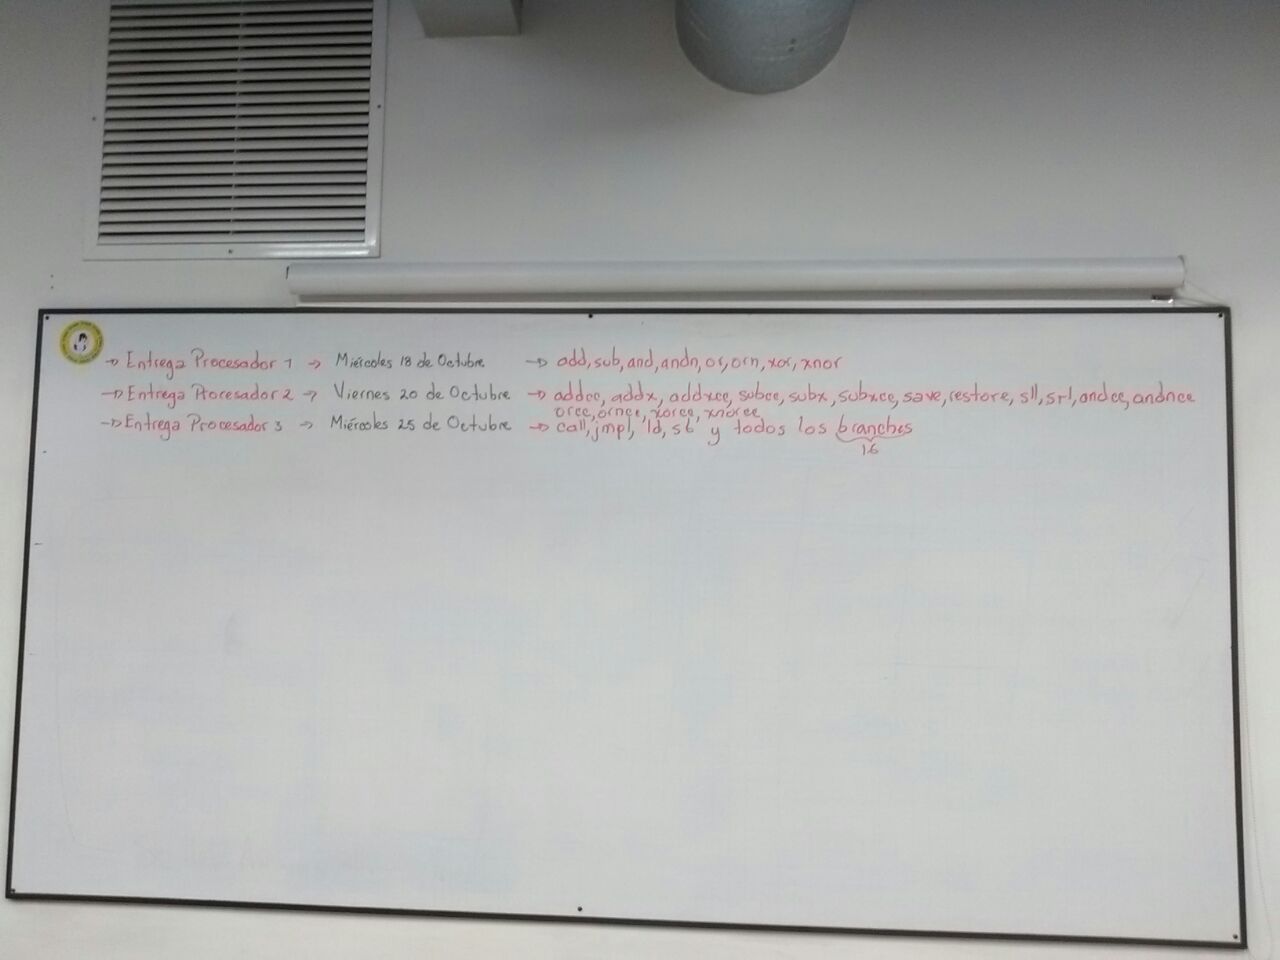 → Entrega Procesador 1 → Miércoles 18 de Octubre → add, sub, and, andn, or, orn, xor, xnor
→ Entrega Procesador 2 → Viernes 20 de Octubre → addcc, addx, addxcc, subcc, subx, subxcc, save, restore, sll, srl, andcc, andncc
orcc, orncc, xorcc, xnorcc
→ Entrega Procesador 3 → Miércoles 25 de Octubre → call, jmpl, ld, st y todos los branches
16